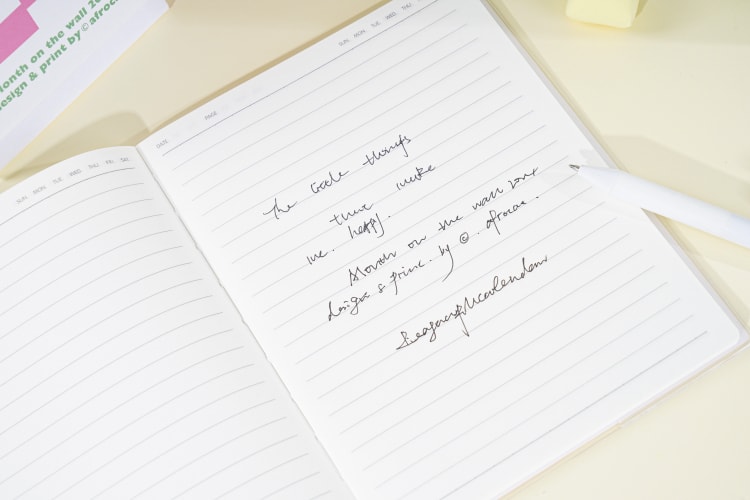 onth on the wall 20
esign & print by © afroca
SUN MON TUE WED THU FRI SAT
DATE PAGE
SUN MON TUE WED THU
The little things
that make
me happy.
Month on the wall
design & print by © afrocat.